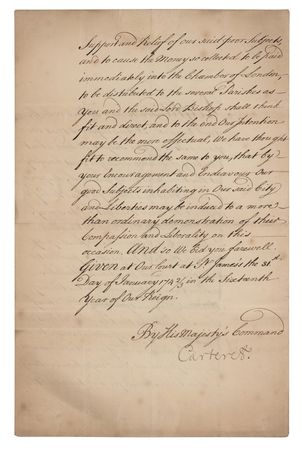 Support and Relief of our said poor Subjects,
and to cause the Money so collected to be paid
immediately into the Chamber of London,
to be distributed to the several Parishes as
You and the said Lord Bishop shall think
fit and direct, and to the end Our Intention
may be the more effectual, We have thought
fit to recommend the same to you, that by
your Encouragement and Endeavours Our
good Subjects inhabiting in Our said City
and Liberties may be incited to a more
than ordinary demonstration of their
Compassion and Liberality on this
occasion. And so We bid you farewell.
Given at Our Court at St. James's the 31st
Day of January 1742/3 in the Sixteenth
Year of Our Reign.
By His Majesty's Command
Carteret.